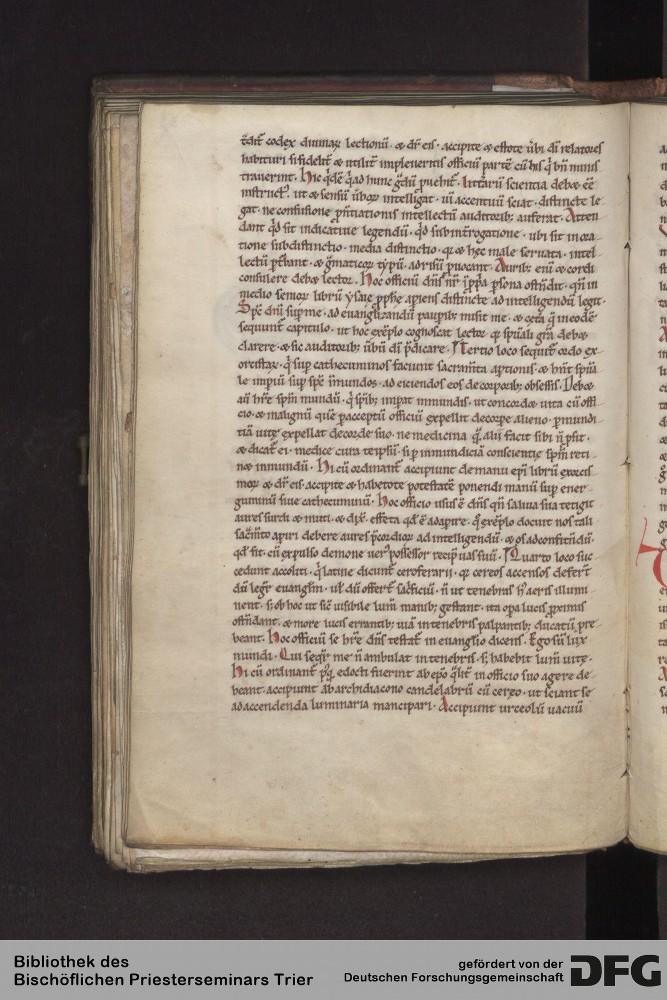 tdit codex diuinaꝝ lectionū · & dr̄ eis · accipite & estote ūbi dī relatores
habituri si fidelit̄ & utilit̄ impleueritis officiū partē cū his q̇ bn̄ minis
trauerint · Hic q̇dē q̇ ad hunc g̃dū puehit̄ · litt̄arū scientia debet ēē
instruct⁹ · ut & sensū ūboꝝ intelligat · uī accentuū sciat · distincte le
gat · ne confusione p̄ntiationis intellectū auditorib; auferat · Atten
dant qd̄ sit indicatiue legendū · qd̄ sub int̄rogatione · ubi sit in ora
tione subdistinctio · media distinctio · quia & hęc male seruata · intel
lectū pt̄bant · & g̃maticoꝝ typū · ad risū puocant · Aurib; enī & cordi
consulere debet lector · Hoc officiū dn̄s nr̄ ip̄pa psona ostn̄dit · qn̄ in
medio senioꝝ librū ysaię pphę apiens distincte ad intelligendū legit ·
Spc̄ dn̄i sup me · ad euangl̄izandū paupib; misit me · & cet̄a q̄ in eodē
sequunt̄ capitulo · ut hoc exēplo cognoscat lector qꝫ spūali gr̄a debet
clarere · & sic auditorib; ūbū dī p̄dicare · Tertio loco sequit̄ ordo ex
orcistaꝝ · q̇ sup cathecuminos faciunt sacram̄ta
le impiū sup spc̄ īmundos · ad eiciendos eos de corporib; obsessis · Debet
aū hr̄e spm̄ mundū · q̇ spib; impat inmundis · ut concordet uita cū offi
cio · & malignū quē p acceptū officiū expellit de corpe alieno · p mundi
tiā uitę expellat de corde suo · ne medicina q̄ alii facit sibi n̄ psit ·
& dicat̄ ei · medice cura teipsū · si p inmundiciā conscientię spm̄ reti
net inmundū · Hi cū ordinant̄ accipiunt de manu epī librū exorcis
moꝝ & dr̄ eis · accipite & habetote potestatē ponendi manū sup ener
guminū siue cathecuminū · Hoc officio usus ē dn̄s qn̄ saliua sua tetigit
aures surdi & muti · & dix̄ · effeta qd̄ ē adapire · q̇ exēplo docuit nos tali
sac̄mto apiri debere aures p̄cordioꝝ ad intelligendū · & os ad confitn̄dū ·
qd̄ fit cū expulso demone uer⁹ possessor recip̄ uas suū · Quarto loco suc
cedunt accoliti · q̇ latine dicunt̄ ceroferarii · quia cereos accensos defer̄t
dū legit̄ euanglm̄ · ul̄ dū offert̄ sac̄ficiū · n̄ ut tenebras h⁹ aeris illumi
nent · s; ob hoc ut sic̄ uisibile lum̄ manib; gestant · ita opa lucis pximis
ostn̄dant · & more lucis errantib; uiā in tenebris palpantib; ducatū p̄
beant · Hoc officiū se hr̄e dn̄s testat̄ in euanglio dicens · Ego sū lux
mundi · Qui seqit̄ me n̄ ambulat in tenebris · s; habebit lum̄ uitę ·
Hi cū ordinant̄ p⁹q̄ edocti fuerint ab epō q̄lit̄ in officio suo agere de
beant · accipiunt ab archidiacono candelabrū cū cereo · ut sciant se
ad accendenda luminaria mancipari · Accipiunt urceolū uacuū
Bibliothek des
Bischöflichen Priesterseminars Trier
gefördert von der
Deutschen Forschungsgemeinschaft
DFG